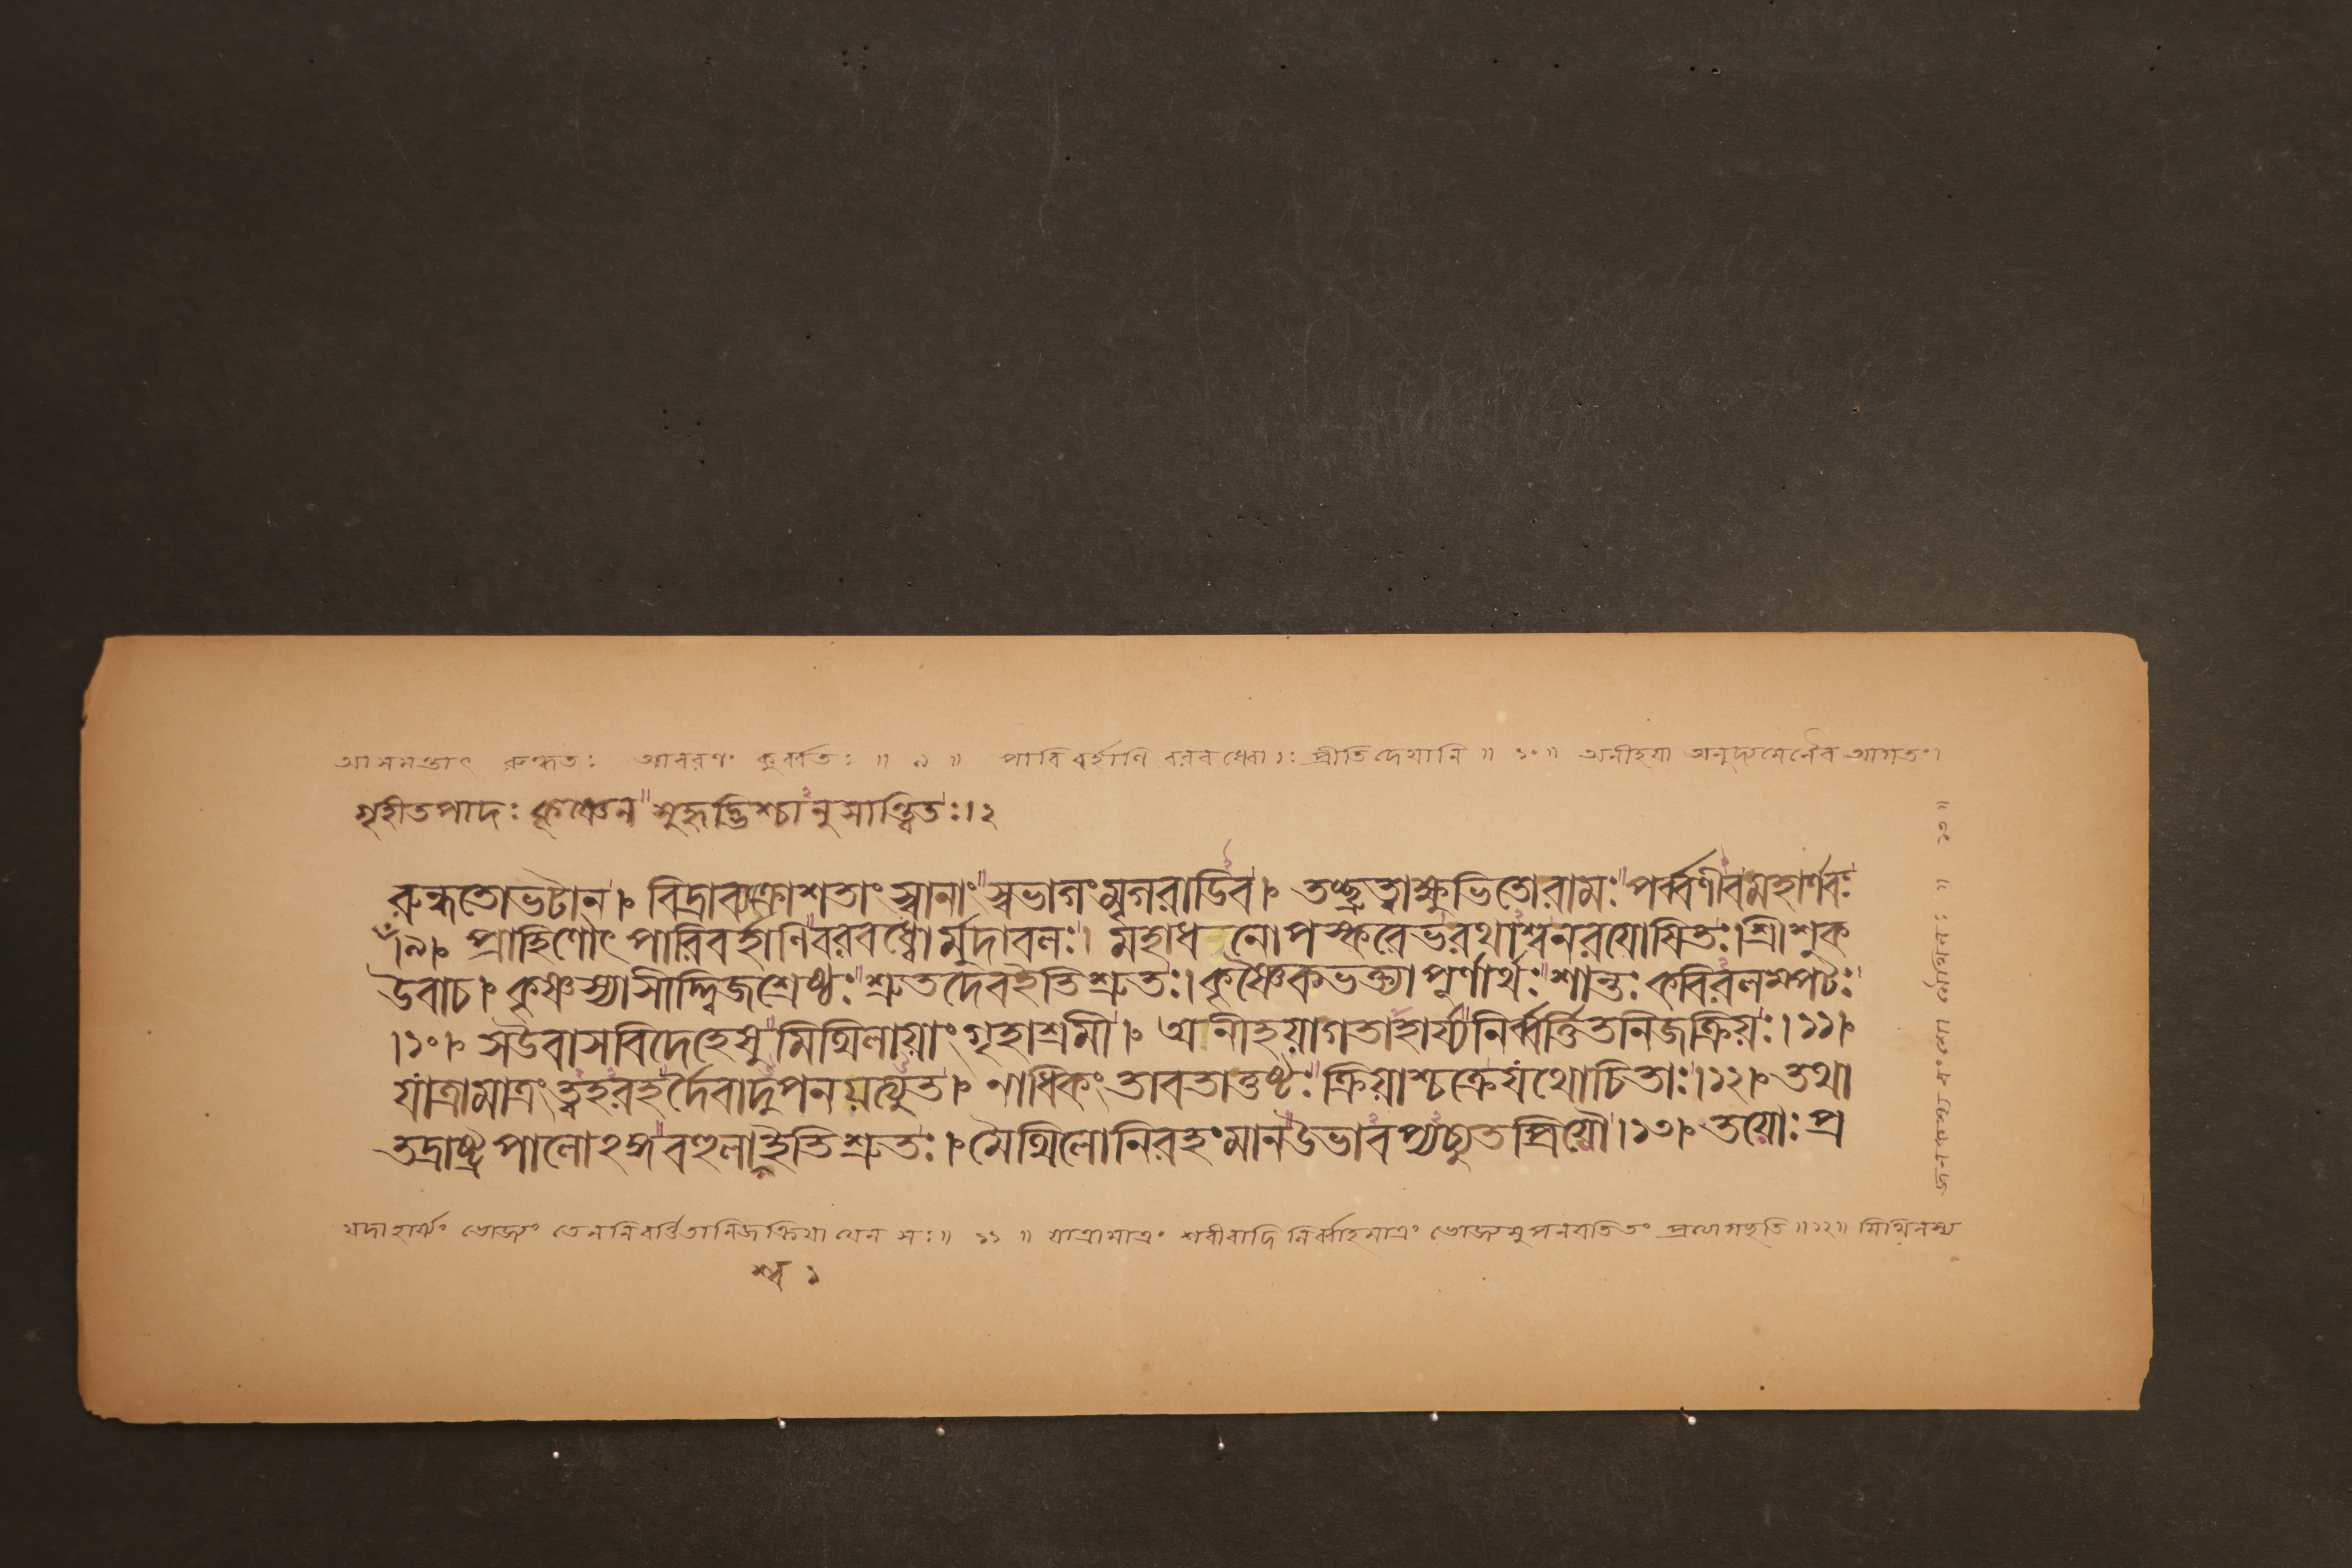 আসমন্তাৎ রুন্ধতঃ আবরণং কুর্ব্বতঃ ॥ ৯ ॥ পারিবর্হাণি বরবধ্বোঃ প্রীতিদেয়ানি ॥ ১০ ॥ অনীহয়া অনুদ্যমেনৈব আগতং।
গৃহীতপাদঃ কৃষ্ণেন সুহৃদ্ভিশ্চানুসান্ত্বিতঃ।২
রুন্ধতোভটান। বিদ্রাব্যক্রোশতাং স্বানাং স্বভাগং মৃগরাডিব। তচ্ছ্রুত্বাক্ষুভিতোরামঃ পর্ব্বণীবমহার্ণবঃ
।৯। প্রাহিণোৎ পারিবর্হাণি বরবধ্বোর্মুদাবলঃ। মহাধনোপস্করেভরথাশ্বনরযোষিতঃ। শ্রীশুক
উবাচ। কৃষ্ণস্যাসীদ্দ্বিজশ্রেষ্ঠঃ শ্রুতদেবইতিশ্রুতঃ। কৃষ্ণৈকভক্ত্যাপূর্ণার্থঃ শান্তঃ কবিরলম্পটঃ
।১০। সউবাসবিদেহেষু মিথিলায়াং গৃহাশ্রমী। অনীহয়াগতাহার্য্যনির্ব্বর্ত্তিতনিজক্রিয়ঃ।১১।
যাত্রামাত্রং ত্বহরহর্দৈবাদুপনমত্যুত। নাধিকং তাবতাতুষ্টঃ ক্রিয়াশ্চক্রেযথোচিতাঃ।১২। তথা
তদ্রাষ্ট্রপালোঽঙ্গ বহুলাশ্বইতিশ্রুতঃ। মৈথিলোনিরহংমানউভাবপ্যচ্যুতপ্রিয়ৌ।১৩। তয়োঃ প্র
যদাহার্য্যং ভোজ্যং তেননির্বর্ত্তিতানিজক্রিয়া যেন সঃ॥ ১১ ॥ যাত্রামাত্রং শরীরাদিনির্ব্বাহমাত্রং ভোজ্যমুপনমতি ॥১২॥ মিথিলস্য
শ্ব ১
জনকস্য বংশ্যো মৈথিলঃ ॥ ১৩॥